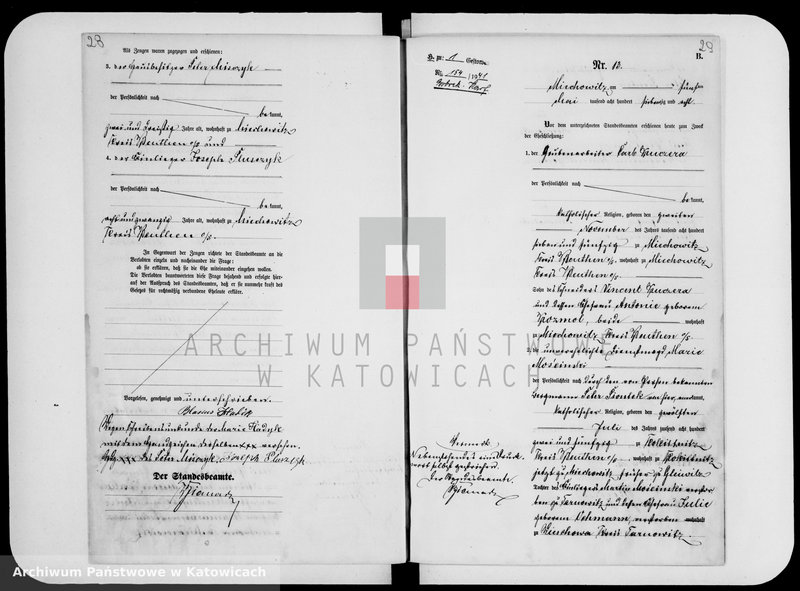 28
Als Zeugen waren zugezogen und erschienen:
3. der Hausbesitzer Peter Misczyk
der Persönlichkeit nach
be kannt,
zwei und dreißig Jahre alt, wohnhaft zu Miechowitz
Kreis Beuthen o/s und
4. der Einlieger Joseph Pluszyk
der Persönlichkeit nach
be kannt,
acht und zwanzig Jahre alt, wohnhaft zu Miechowitz
Kreis Beuthen o/s.
In Gegenwart der Zeugen richtete der Standesbeamte an die
Verlobten einzeln und nacheinander die Frage:
ob sie erklären, daß sie die Ehe miteinander eingehen wollen.
Die Verlobten beantworteten diese Frage bejahend und erfolgte hier-
auf der Ausspruch des Standesbeamten, daß er sie nunmehr kraft des
Gesetzes für rechtmäßig verbundene Eheleute erkläre.
Vorgelesen, genehmigt und unterschrieben.
Blasius
Wegen Schreibensunkunde der Marie
mit dem Handzeichen derselben xxx versehen.
xxx Peter Misczyk. Joseph
Der Standesbeamte.
29
B.
H. zu: 1 Gestorben
Nr. 154/1941
Bobrek-Karf
Nr. 12.
Miechowitz am fünften
Mai tausend acht hundert siebenzig und acht
Vor dem unterzeichneten Standesbeamten erschienen heute zum Zweck
der Eheschließung:
1. der Grubenarbeiter Karl Kuczera
der Persönlichkeit nach
be kannt,
katholischer Religion, geboren den zweiten
November des Jahres tausend acht hundert
sieben und fünfzig zu Miechowitz
Kreis Beuthen o/s. wohnhaft zu Miechowitz
Kreis Beuthen o/s.
Sohn des Schneiders Vincent Kuczera
und dessen Ehefrau Antonie geborene
beide wohnhaft
zu Miechowitz, Kreis Beuthen o/s
2. die unverehelichte Dienstmagd Marie
Moscinski
der Persönlichkeit nach durch den von Person bekannten
Bergmann Peter Piontek anerkannt,
katholischer Religion, geboren den zwölften
Juli des Jahres tausend acht hundert
zwei und fünfzig zu Rokittnitz
Kreis Beuthen o/s. wohnhaft zu Rokittnitz
jetzt zu Miechowitz früher zu Gleiwitz
Tochter des Einliegers Martin Moscinski verstor-
ben zu Tarnowitz und dessen Ehefrau Julie
geborene Lehmann, verstorben wohnhaft
zu Kreis Tarnowitz.
Vermerk
Nebenstehend ein Druck-
wort selbst gestrichen.
Der Standesbeamte.
ARCHIWUM PAŃSTWOWE
W KATOWICACH
Archiwum Państwowe w Katowicach